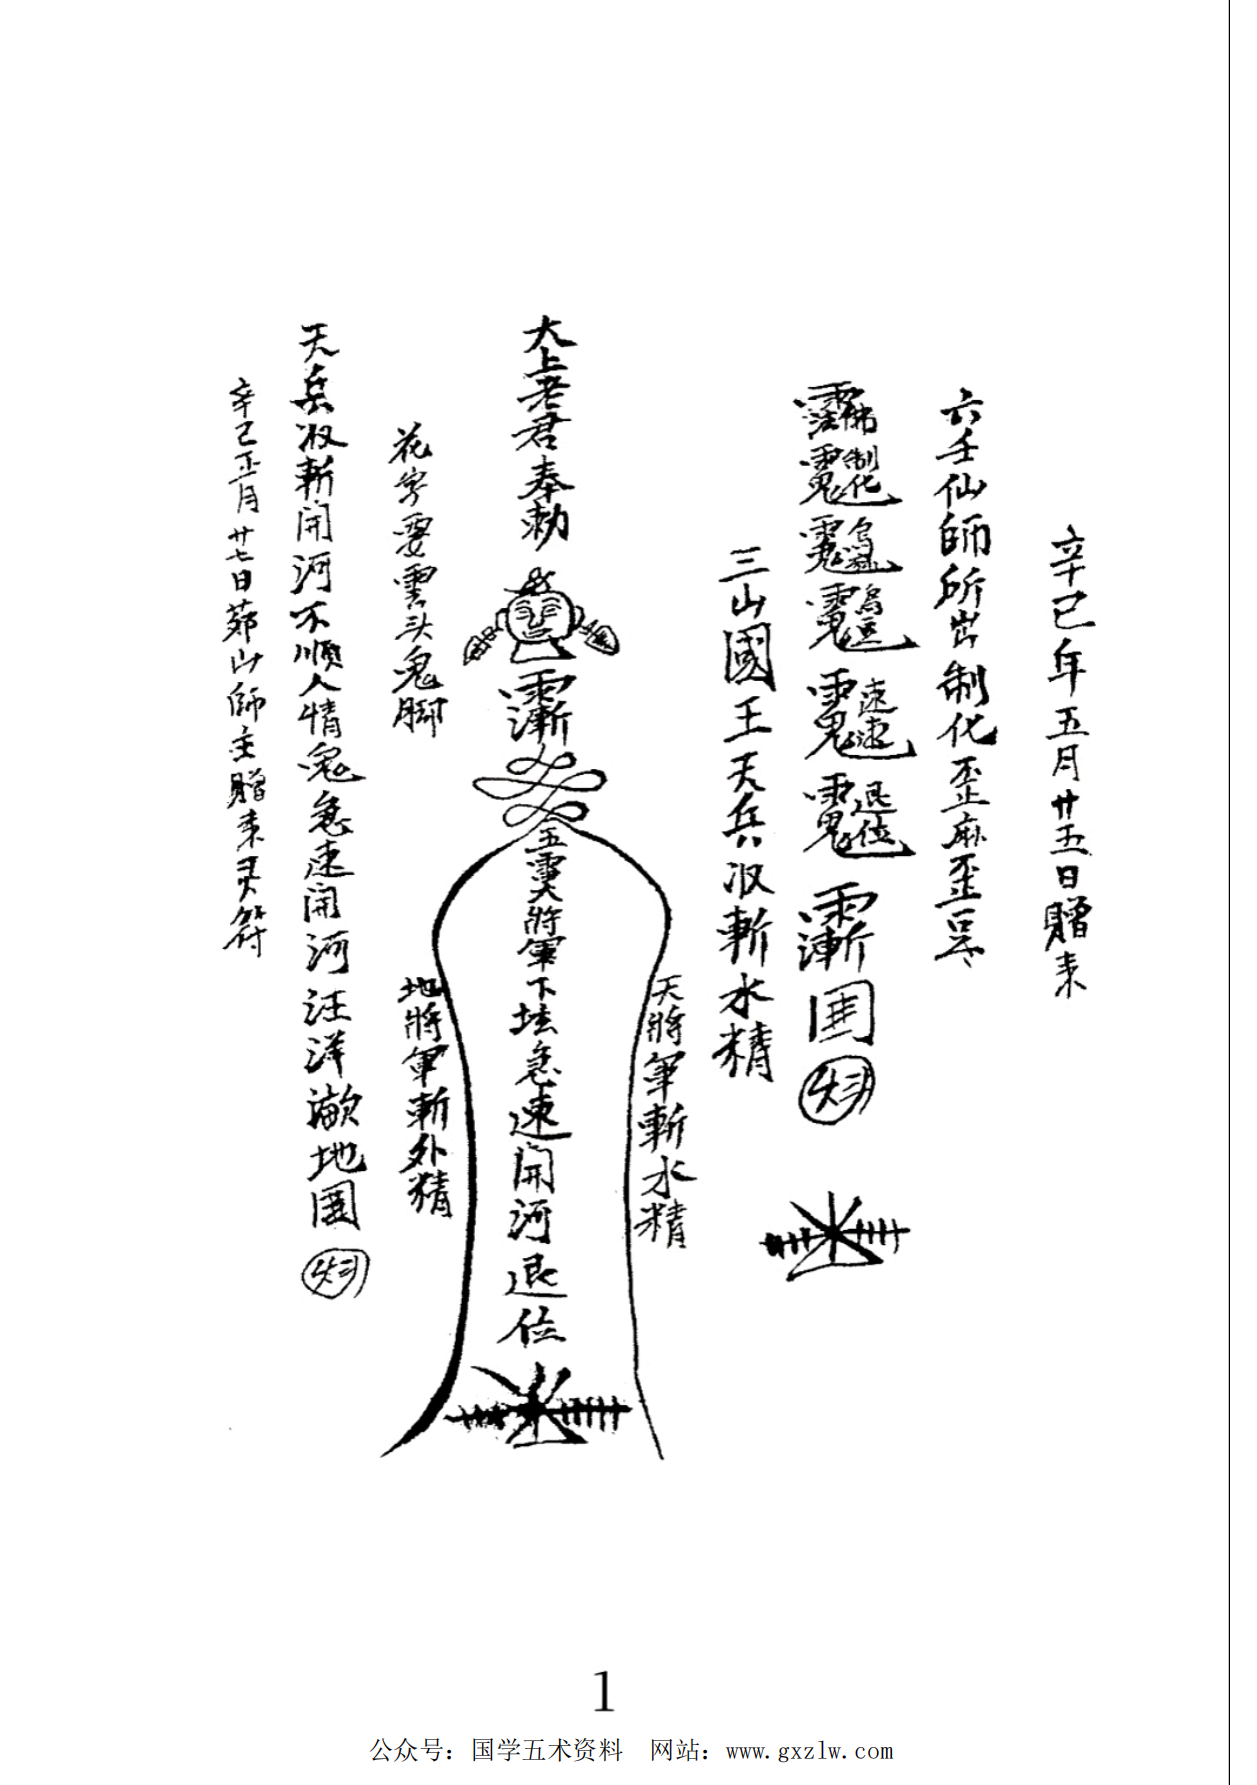 辛己年五月廿五日贈来
六壬仙師所出制化歪麻歪豆
佛 制化 速速 退位
三山國王天兵收斬水精
天將軍斬水精
大上老君奉勅
五雷大將軍下坛急速開河退位
地將軍斬外精
花字要雲头鬼脚
天兵收斬開河不順人情鬼急速開河汪洋地
辛己正月廿七日茆山師主贈来灵符
1
公众号：国学五术资料 网站：www.gxzlw.com